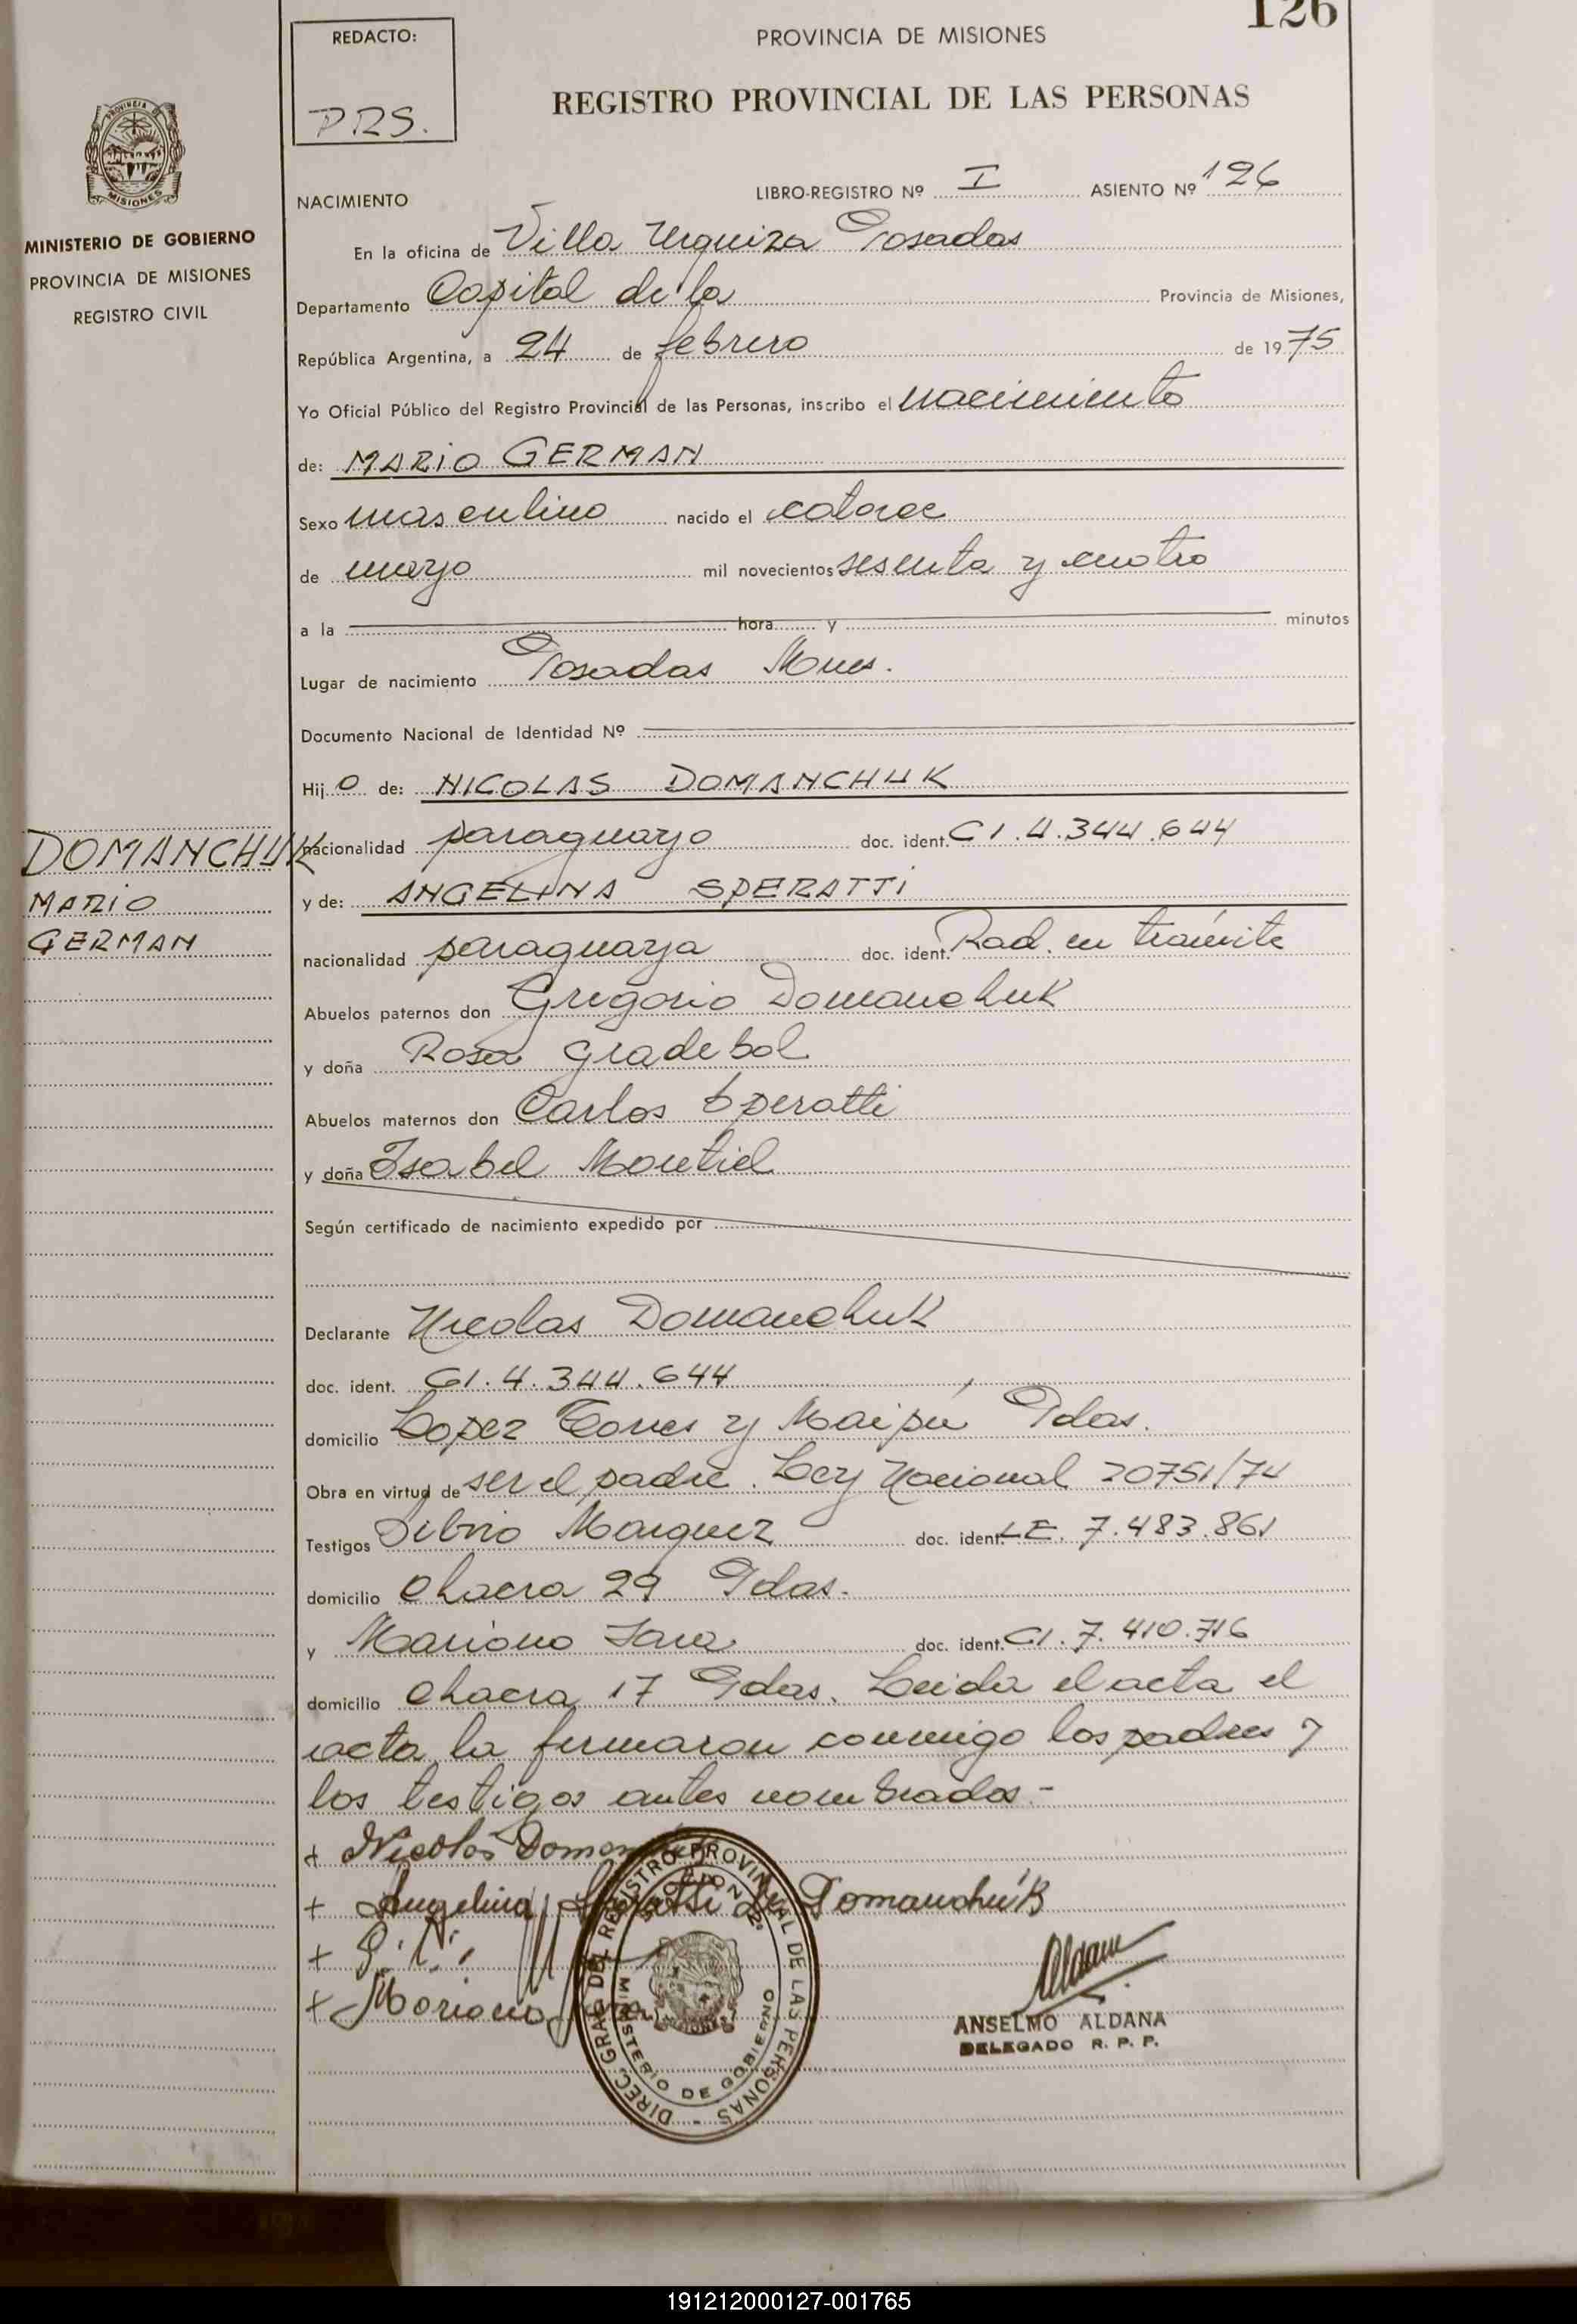 126
REDACTO:
PRS.
PROVINCIA DE MISIONES
REGISTRO PROVINCIAL DE LAS PERSONAS
PROVINCIA DE MISIONES
MINISTERIO DE GOBIERNO
PROVINCIA DE MISIONES
REGISTRO CIVIL
NACIMIENTO LIBRO-REGISTRO Nº I ASIENTO Nº 126
En la oficina de Villa Urquiza Posadas
Departamento Capital de la Provincia de Misiones,
República Argentina, a 24 de febrero de 1975
Yo Oficial Público del Registro Provincial de las Personas, inscribo el nacimiento
de: MARIO GERMAN
Sexo masculino nacido el catorce
de mayo mil novecientos sesenta y cuatro
a la hora y minutos
Lugar de nacimiento Posadas Mnes.
Documento Nacional de Identidad Nº
Hijo de: NICOLAS DOMANCHUK
DOMANCHUK
MARIO
GERMAN
nacionalidad paraguayo doc. ident. CI. 4.344.644
y de: ANGELINA SPERATTI
nacionalidad paraguaya doc. ident. Rad. en trámite
Abuelos paternos don Gregorio Domanchuk
y doña Rosa Gradebol
Abuelos maternos don Carlos Speratti
y doña Isabel Montiel
Según certificado de nacimiento expedido por
Declarante Nicolas Domanchuk
doc. ident. CI. 4.344.644
domicilio Lopez Torres y Maipú Pdas.
Obra en virtud de ser el padre. Ley Nacional 20751/74
Testigos Silvio Marquez doc. ident. LE. 7.483.861
domicilio Chacra 29 Pdas.
y Mariano Jara doc. ident. CI. 7.410.716
domicilio Chacra 17 Pdas. Leida el acta el
acta la firmaron conmigo los padres y
los testigos antes nombrados.-
+ Nicolas Domanchuk
+ Angelina Speratti de Domanchuk
+
+ Mariano Jara
DIREC. GRAL. DEL REGISTRO PROVINCIAL DE LAS PERSONAS
MINISTERIO DE GOBIERNO
Aldana
ANSELMO ALDANA
DELEGADO R. P. P.
191212000127-001765